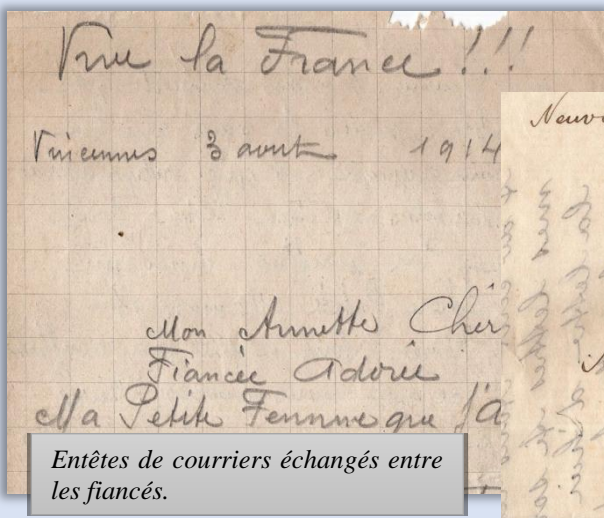 Vive la France !!!
Vincennes 3 aout 1914
Mon Annette Chér
Fiancée Adorée
Ma Petite Femme que j'a
Neuvi
Entêtes de courriers échangés entre
les fiancés.